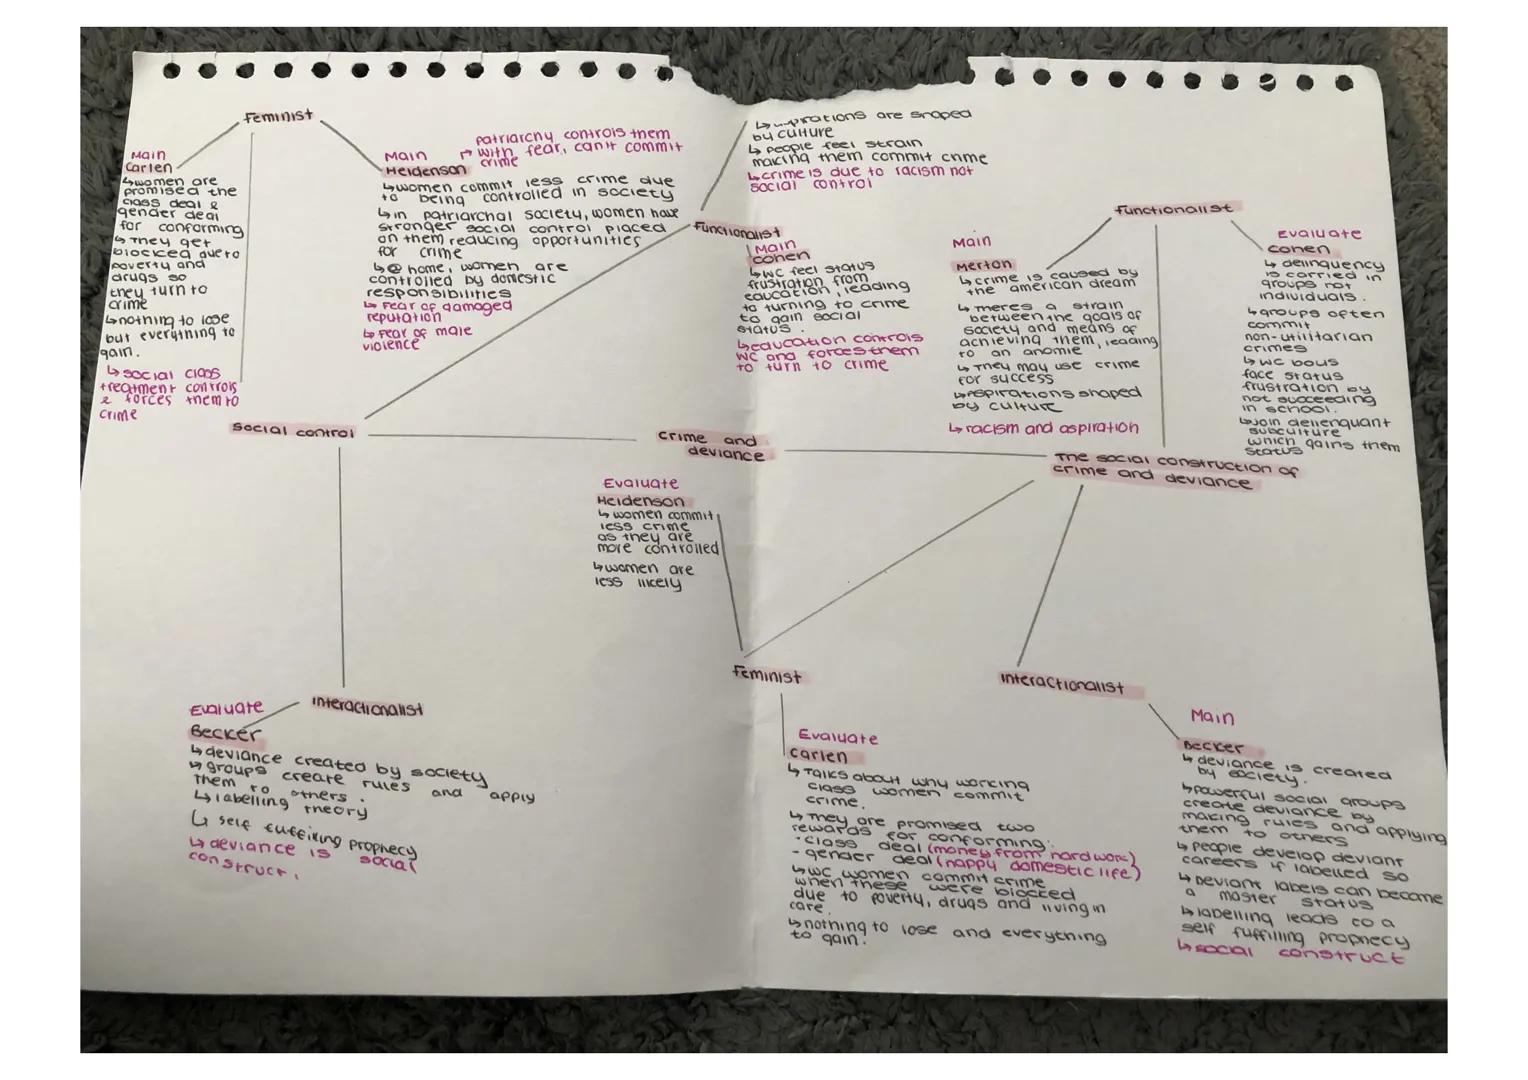 Feminist
Main
Carlen
↳women are
promised the
class deal &
gender deal
for conforming
↳They get
blocked due to
poverty and
drugs so
they turn to
crime
↳nothing to lose
but everything to
gain.
↳social class
treatment controls
& forces them to
crime
Main
Heidenson
patriarchy controls them
with fear, can't commit
crime
↳women commit less crime due
to being controlled in society
↳in patriarchal society, women have
stronger social control placed
on them reducing opportunities
for crime
↳@ home, women are
controlled by domestic
responsibilities
↳Fear of damaged
reputation
↳Fear of male
violence
are shaped
by culture
↳people feel strain
making them commit crime
↳crime is due to racism not
social control
Functionalist
Main
Cohen
↳WC feel status
frustration from
education, leading
to turning to crime
to gain social
status.
↳education controls
WC and forces them
to turn to crime
Functionalist
Main
Merton
↳crime is caused by
the american dream
↳theres a strain
between the goals of
society and means of
achieving them, leading
to an anomie
↳They may use crime
for success
↳aspirations shaped
by culture
↳racism and aspiration
Evaluate
Cohen
↳delinquency
is carried in
groups not
individuals.
↳groups often
commit
non-utilitarian
crimes
↳WC bous
face status
frustration by
not succeeding
in school.
↳join delienquant
subculture
which gains them
status
Social control
Crime and
deviance
The social construction of
crime and deviance
Evaluate
Heidenson
↳women commit
less crime
as they are
more controlled
↳women are
less likely
Feminist
Evaluate
Carlen
↳Talks about why working
class women commit
crime.
↳They are promised two
rewards for conforming:
·class deal (money from hard work)
-gender deal (happy domestic life)
↳WC women commit crime
when these were blocked
due to poverty, drugs and living in
care.
↳nothing to lose and everything
to gain.
interactionalist
Evaluate
Becker
↳deviance created by society
↳groups create rules and apply
them to others.
↳labelling theory
↳self fulfilling prophecy
↳deviance is social
construct.
interactionalist
Main
Becker
↳deviance is created
by society.
↳powerful social groups
create deviance by
making rules and applying
them to others
↳people develop deviant
careers if labelled so
↳Deviant labels can become
a master status
↳labelling leads to a
self fuffilling prophecy
↳social construct